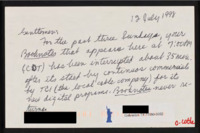 13 July 1998
Gentlemen:
For the past three Sundays, your
Booknotes that appears here at 7:00 PM
(CDT) has been interrupted about 15 min.
after its start by continuous commercials
by TCI (the local cable company) for its
new digital programs. Booknotes never re-
turns.